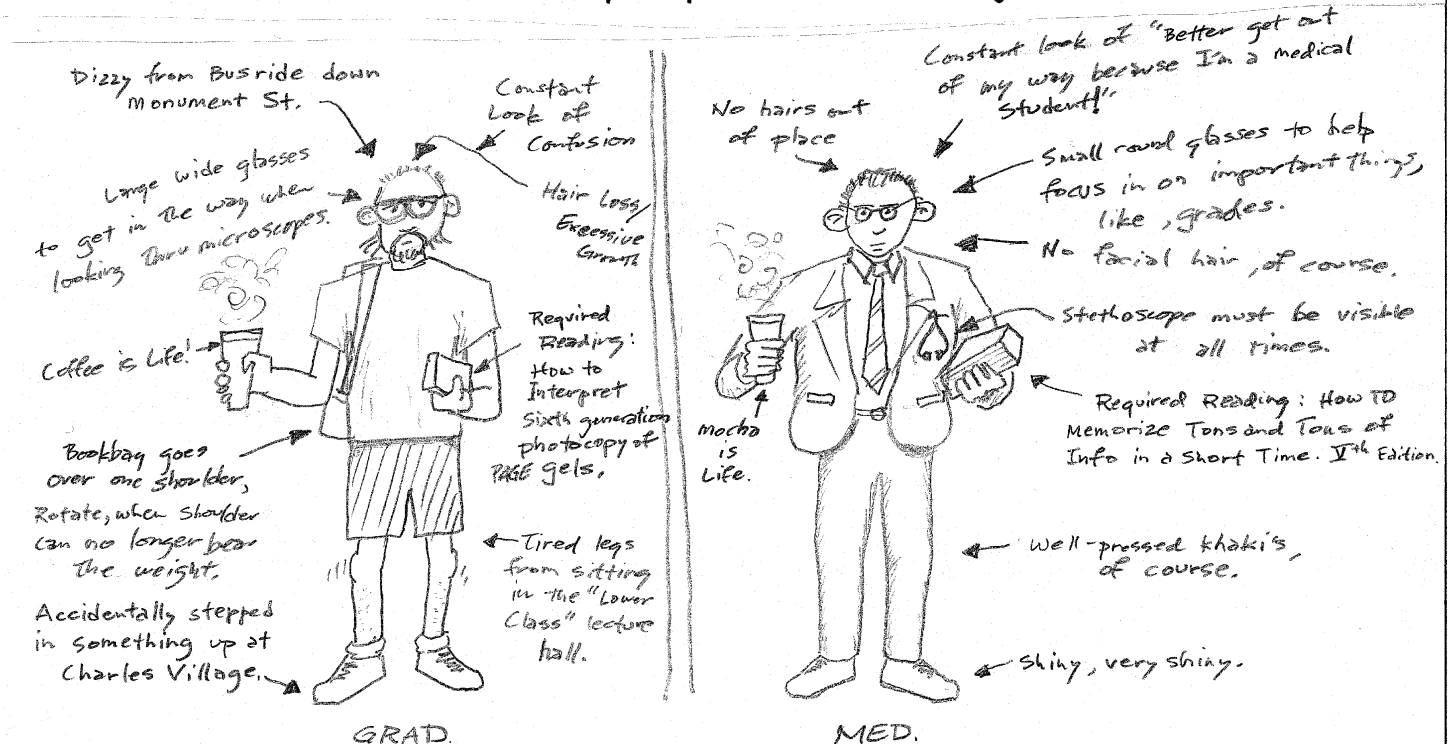 Dizzy from Bus ride down
Monument St.
Constant
Look of
Confusion
Large wide glasses
to get in the way when
looking thru microscopes.
Hair Loss
Excessive
Growth
Coffee is Life!
Required
Reading:
How to
Interpret
Sixth generation
photocopy of
PAGE gels.
Bookbag goes
over one shoulder,
Rotate, when shoulder
can no longer bear
the weight.
Tired legs
from sitting
in the "Lower
Class" lecture
hall.
Accidentally stepped
in something up at
Charles Village.
GRAD.
Constant look of "Better get out
of my way because I'm a medical
Student!"
No hairs out
of place
Small round glasses to help
focus in on important things,
like, grades.
No facial hair, of course.
Stethoscope must be visible
at all times.
Mocha
is
Life.
Required Reading: How To
Memorize Tons and Tons of
Info in a Short Time. Vth Edition.
Well-pressed khaki's,
of course.
Shiny, very shiny.
MED.